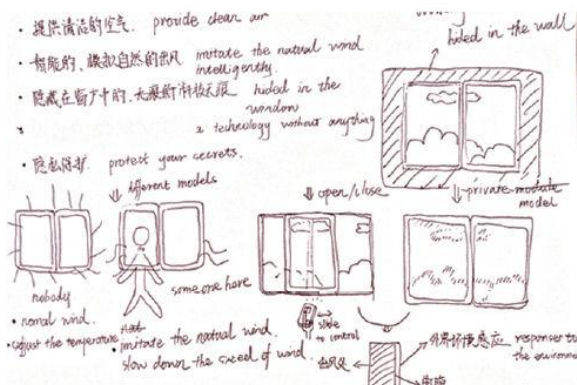 • 提供清洁的空气. provide clean air
• 智能的、模拟自然的出风 imitate the natural wind
intelligently.
• 隐藏在窗户中的、 hided in the
window
technology without anything
• 隐私保护. protect your secrets.
hided in the wall
different models
open/close
private module
model
nobody
• nomal wind.
• adjust the temperature
someone here
• imitate the natural wind.
slow down the speed of wind.
slide
to control
出风处
外界环境感应 responser to
the environme